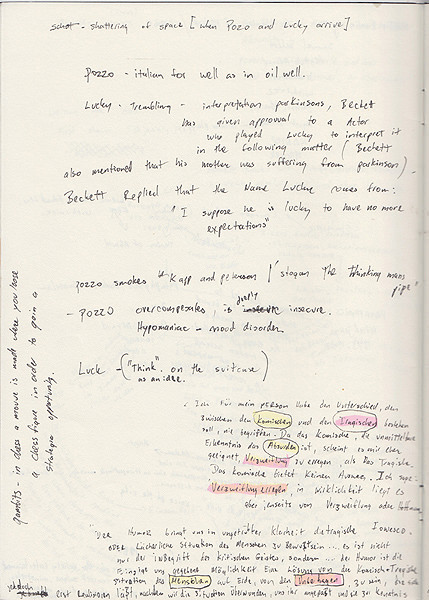 schot - shattering of space [when Pozo and Lucky arrive]
Pozzo - italian for well as in oil well.
Lucky - Trembling - interpretation parkinsons, Becket
has given approuval to a Actor
who played Lucky to interpret it
in the following matter (Beckett
also mentioned that his mother was suffering from parkinson)
Beckett Replied that the Name Lucky comes from:
"I suppose he is lucky to have no more
expectations"
pozzo smokes "Kapp and peterson" slogan The thinking mans
pipe"
- Pozzo overcompensates, is deeply insecure.
Hypomaniac - mood disorder.
Luck - ("Think". on the suitcase)
as an idee.
gambits - in chess a move is made where you lose
a chess figure in order to gain a
strategic opportunity.
Ich für mein person habe den Unterschied, den
zwischen den Komischen und den Tragischen bestehen
soll, nie begriffen. Da das Komische, die unmittelbare
Erkenntnis des Absurden ist, scheint es mir eher
geeignet, Verzweiflung zu erregen, als das Tragische.
Das komische bietet keinen Ausweg. Ich sage:
Verzweiflung erregen, in Wirklichkeit liegt es
aber jenseits von Verzweiflung oder Hoffnung
"Der Humor bringt uns in ungetrübter Klarheit die tragische Ionesco.
oder lächerliche Situation des Menschen zu Bewußtsein ... es ist nicht
nur der Inbegriff des kritischen Geistes, sondern ... der Humor ist die
Einzige uns gegebene Möglichkeit Eine Lösung von der Komisch-Tragischen
Situation des Menschen auf Erde, von dem Unbehagen zu sein,
jedoch erst Realisieren läßt, nachdem wir die Situation überwunden, uns ihr angepaßt und sie zur Kenntnis